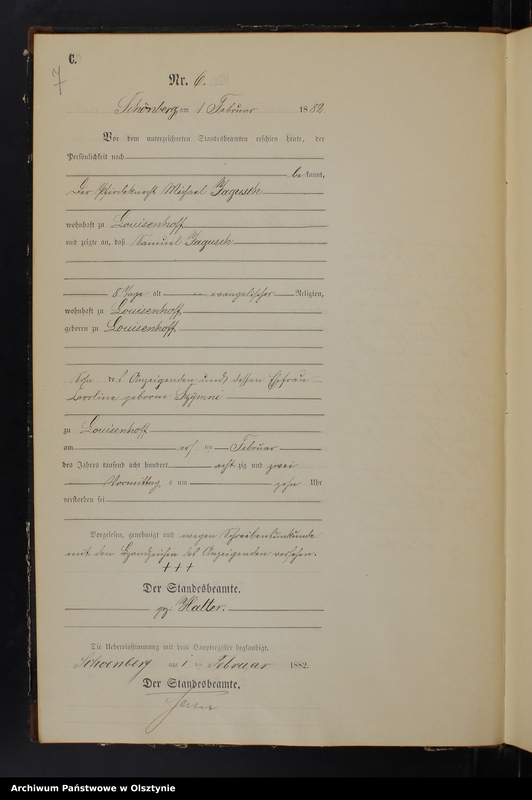 C.
7
Nr. 6.
Schönberg am 1 Februar 1882
Vor dem unterzeichneten Standesbeamten erschien heute, der
Persönlichkeit nach
be kannt,
der Pferdeknecht Michael Jagusch
wohnhaft zu Louisenhoff
und zeigte an, daß Samuel Jagusch
8 Tage alt evangelischer Religion,
wohnhaft zu Louisenhoff
geboren zu Louisenhoff
Sohn des Anzeigenden und dessen Ehefrau
Caroline geborene
zu Louisenhoff
am ten Februar
des Jahres tausend acht hundert acht zig und zwei
Vormittag s um zehn Uhr
verstorben sei
Vorgelesen, genehmigt und wegen Schreibensunkunde
mit den Handzeichen des Anzeigenden versehen.
+++
Der Standesbeamte.
gez. Halter.
Die Uebereinstimmung mit dem Hauptregister beglaubigt.
Schoenberg am 1 ten Februar 1882.
Der Standesbeamte.
Archiwum Państwowe w Olsztynie